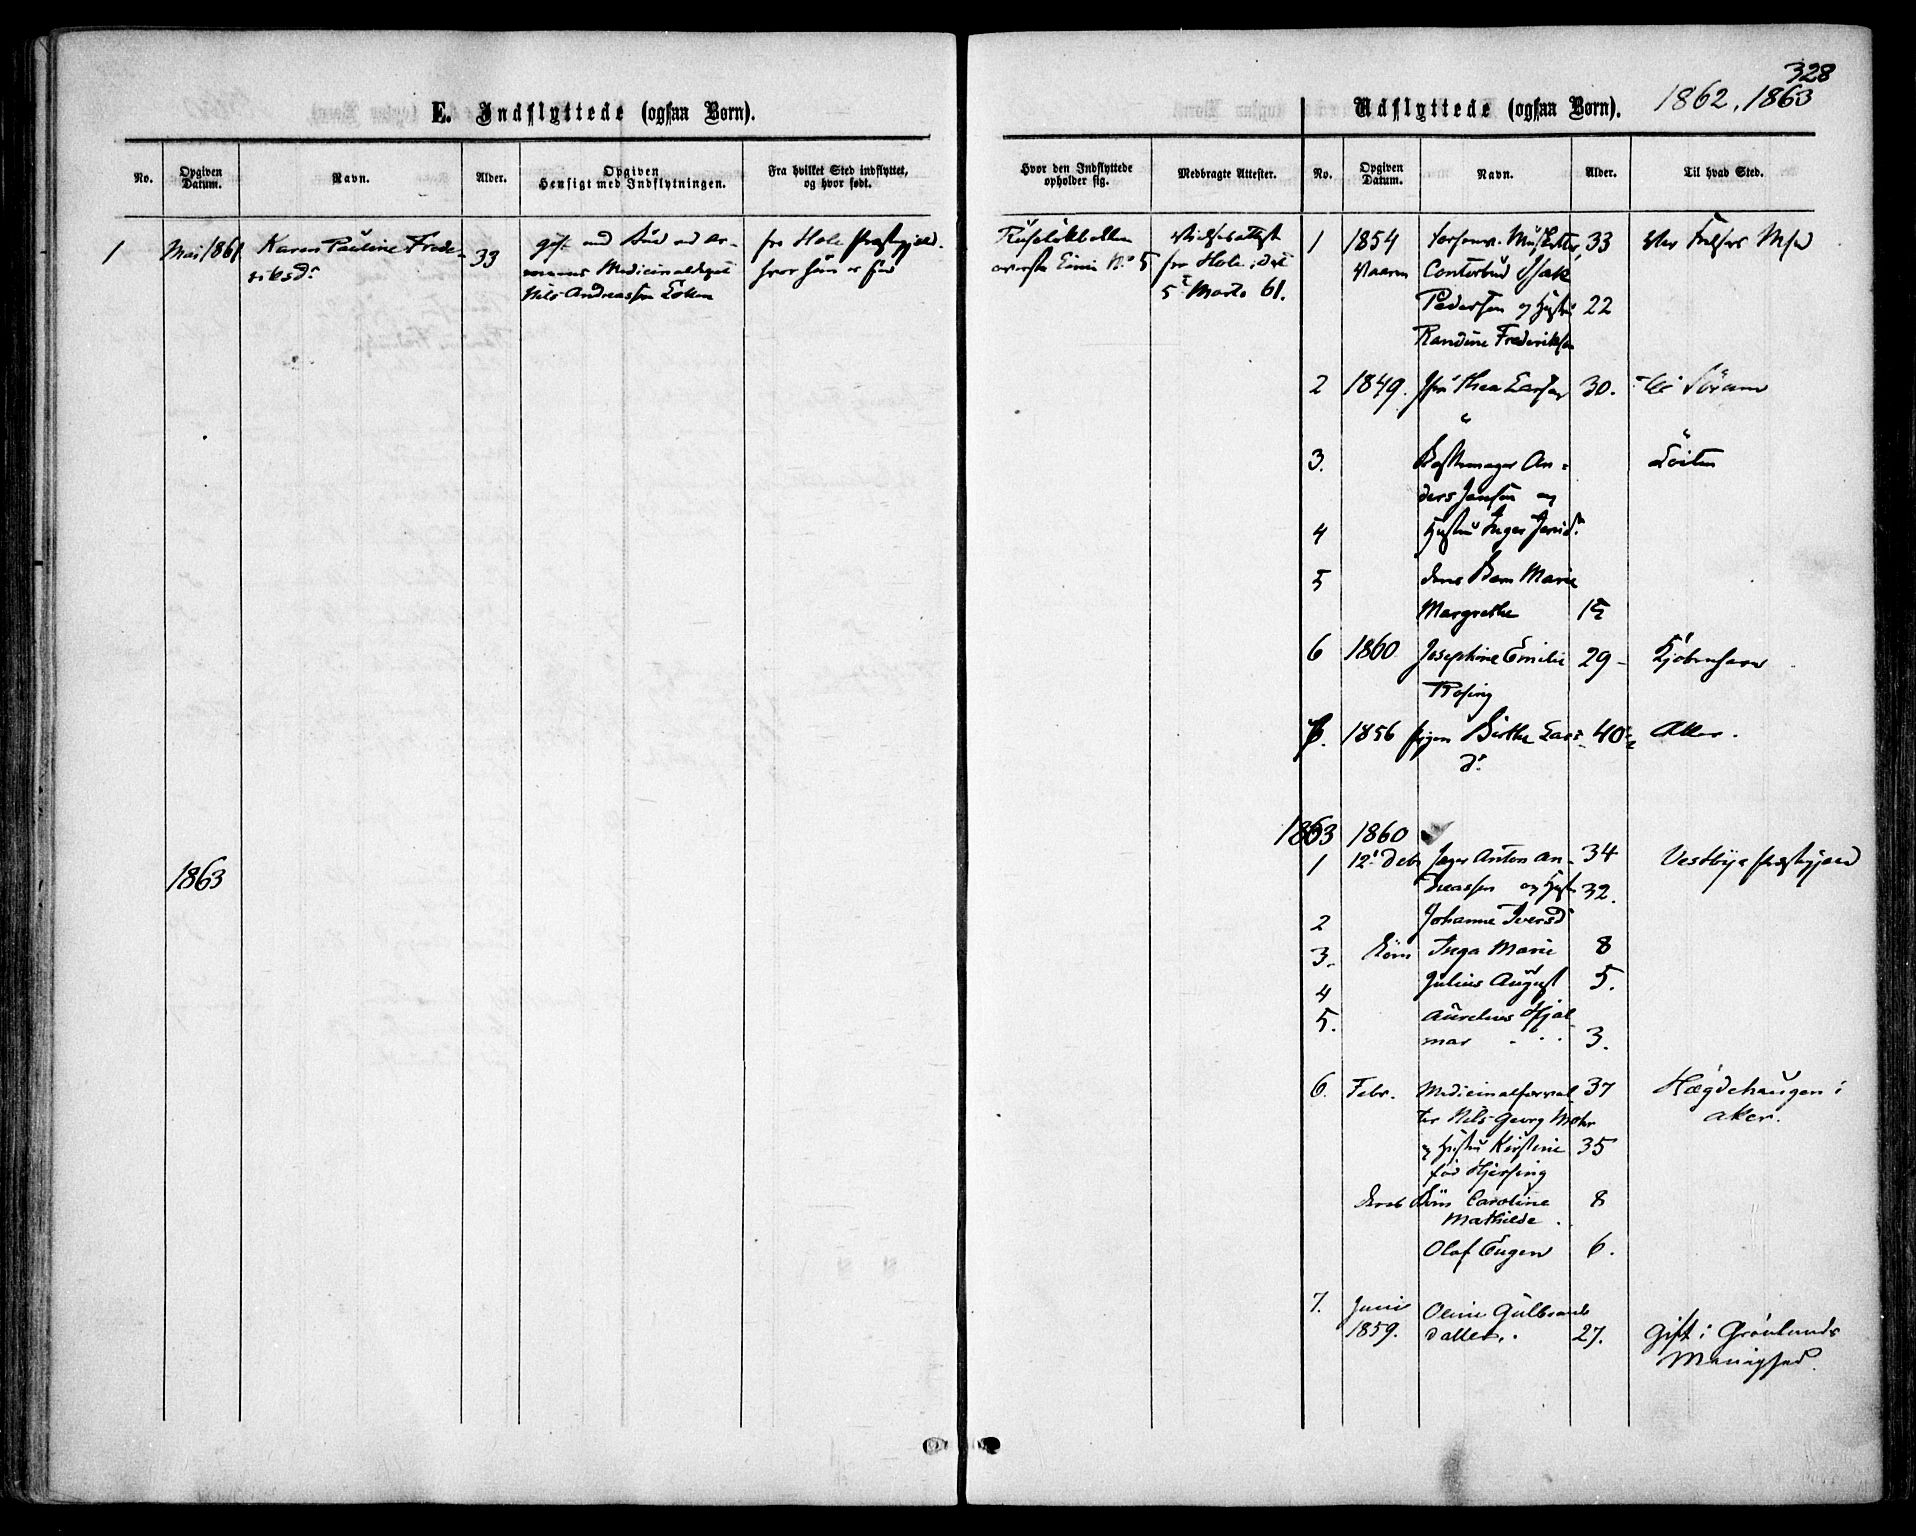 328
1862, 1863
E. Indflyttede (ogsaa Børn).
No.
Opgiven Datum.
Navn.
Alder.
Opgiven Hensigt med Indflytningen.
Fra hvilket Sted indflyttet, og hvor født.
Hvor den Indflyttede opholder sig.
Medbragte Attester.
1
Mai 1861
Karen Pauline Frede-
riksd:
33
gift med Bud ved
Medicinaldepot
Nils Andreassen
fra Hole Præstegjæld
hvor hun er fød
No 5
fra Hole, dat
5t Marts 61.
1863
Udflyttede (ogsaa Børn).
No.
Opgiven Datum.
Navn.
Alder.
Til hvad Sted.
1
1854
Vaaren
33
Contorbud Isak
Pedersen og Hustru
22
Randine Frederiksen
2
1849.
Thea Larsen
30.
til Sørum
3.
An-
ders Jansen og
Løiten
4
Hustru Inger
5
deres Barn Marie
Margrethe
15
6
1860
Josephine Emilie
Rosing
29
Kjøbenhavn
7.
1856
pigen Birthe Lars
d:
40
Aker.
1863
1860
1
12t Deb
Anton An-
34
dreassen og Hust
32.
Vestbye præstegjæld
2
Johanne Iversd
3.
Børn
Inga Marie
8
4
Julius August
5.
5.
Aurelius Hjal-
mar
3.
6.
Febr.
Medicinalforval-
37
ter Nils Georg Mohr
og Hustru Kirstine
35
fød Hjersing
Hægdehaugen i
Aker.
deres Børn Caroline
8
Mathilde
Olaf Eugen
6.
7.
Juni
1859.
Oline Gulbrands
datter.
27.
Gift i Grønlands
Menighed.